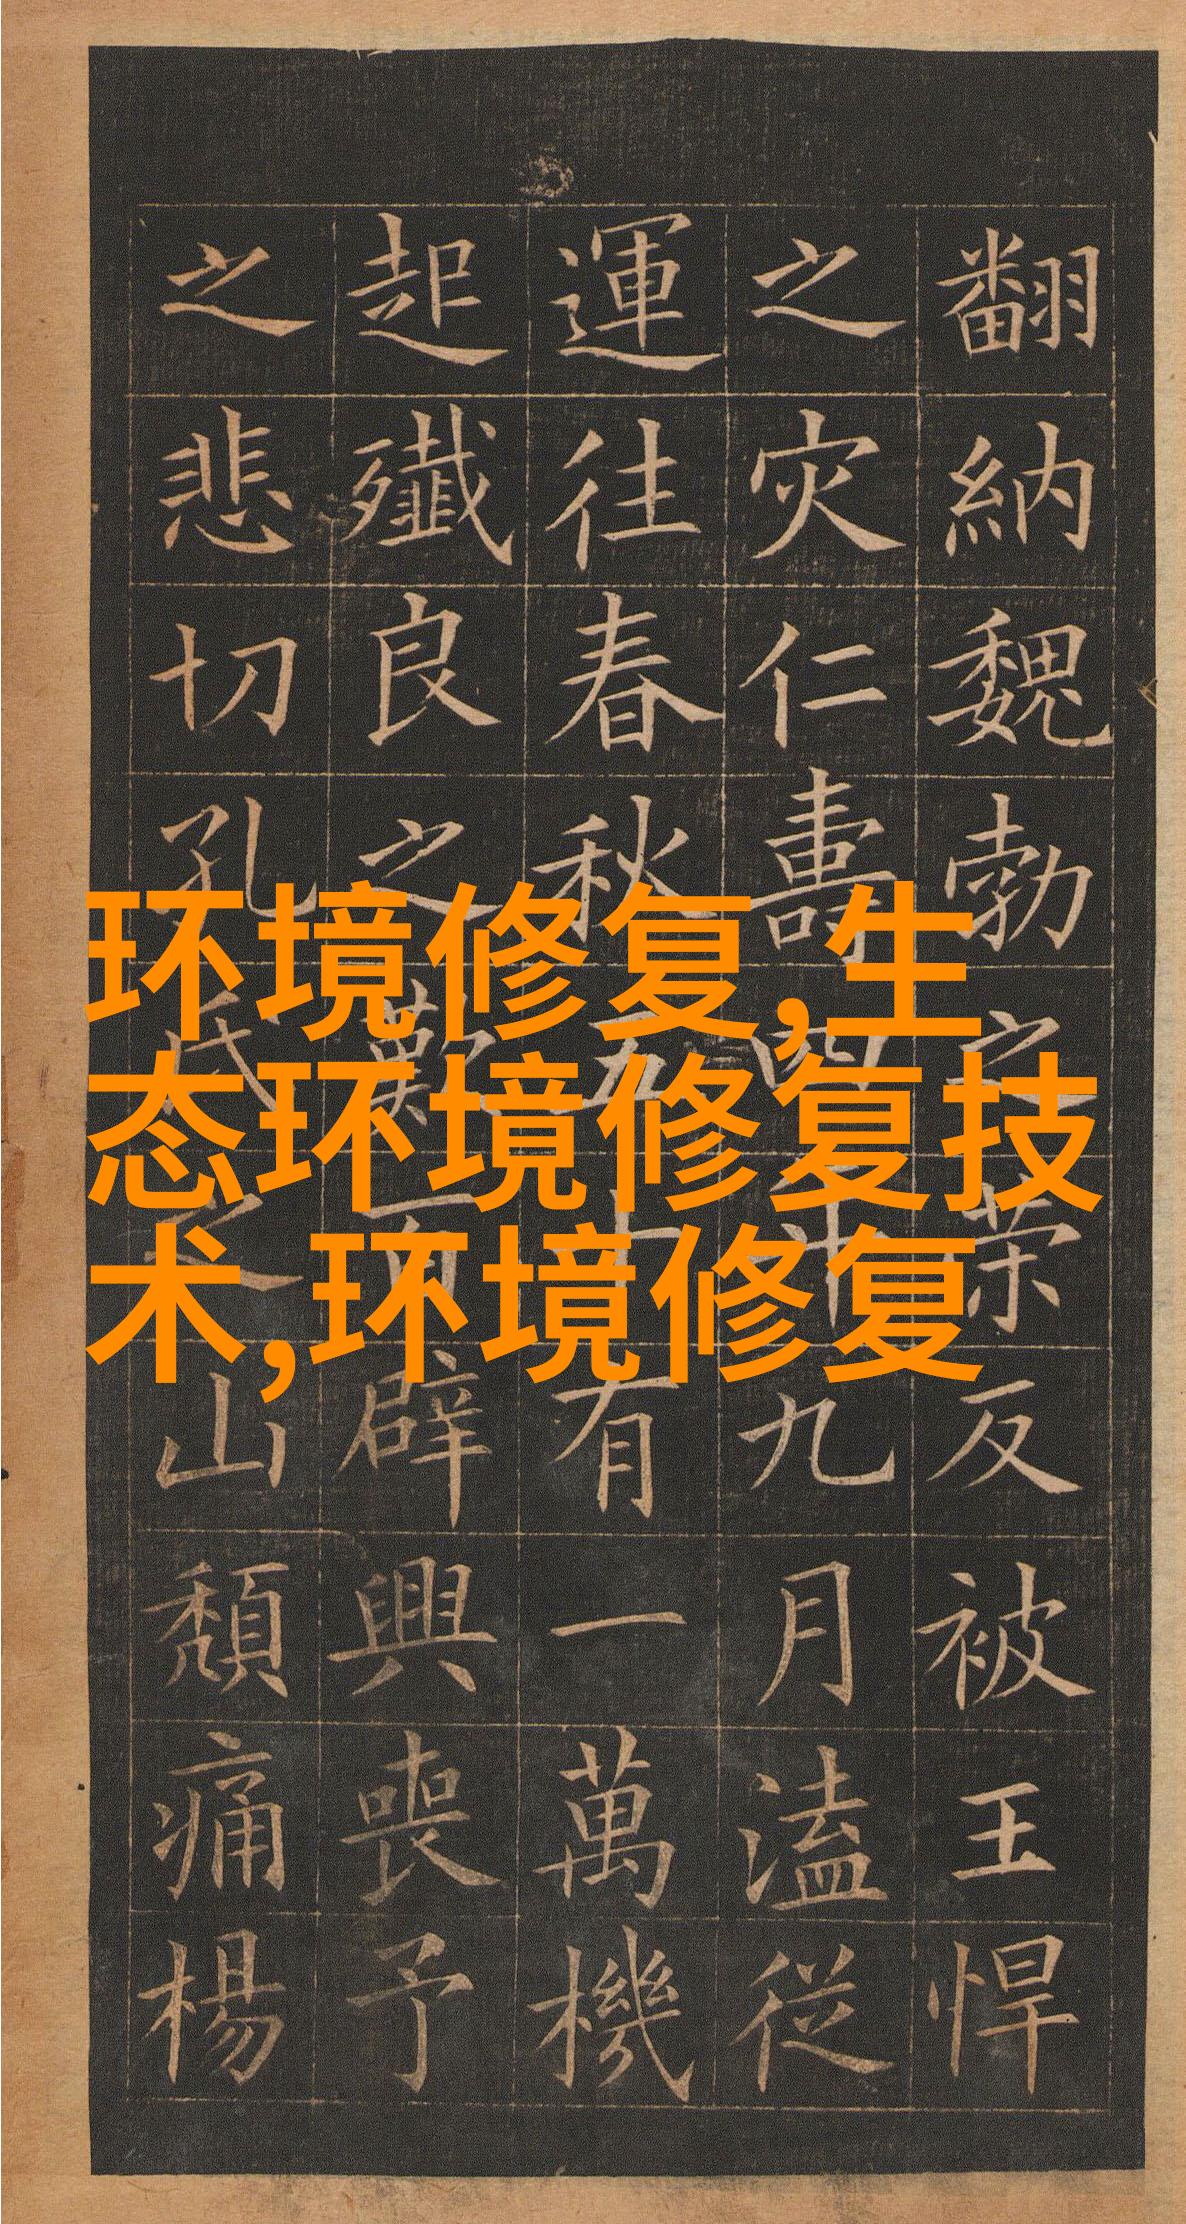 环境修复,生
态环境修复技
术,环境修复
翻納魏勃之反被王悍
之灾仁壽四年九月溘從
運往春秋五十有一萬機
起殲良之歎百辟興喪予
之悲切孔氏之山頹痛楊